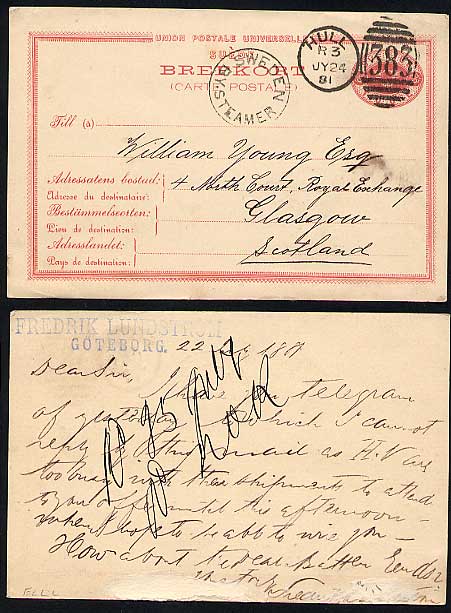 UNION POSTALE UNIVERSELLE
SUÈDE
BREFKORT
(CARTE POSTALE)
SWEDEN
BY STEAMER
HULL
R3
JY 24
81
383
Till (à)
William Young Esq
Adressatens bostad:
Adresse du destinataire:
4 North Court, Royal Exchange
Bestämmelseorten:
Lieu de destination:
Glasgow
Adresslandet:
Pays de destination:
Scotland
FREDRIK LUNDSTRÖM
GÖTEBORG.
22 1881
Dear Sir,
I have your telegram
of yesterday which I cannot
reply by this mail as H.V are
too busy with their shipments to attend
to your until this afternoon -
when I hope to be able to wire you -
How about